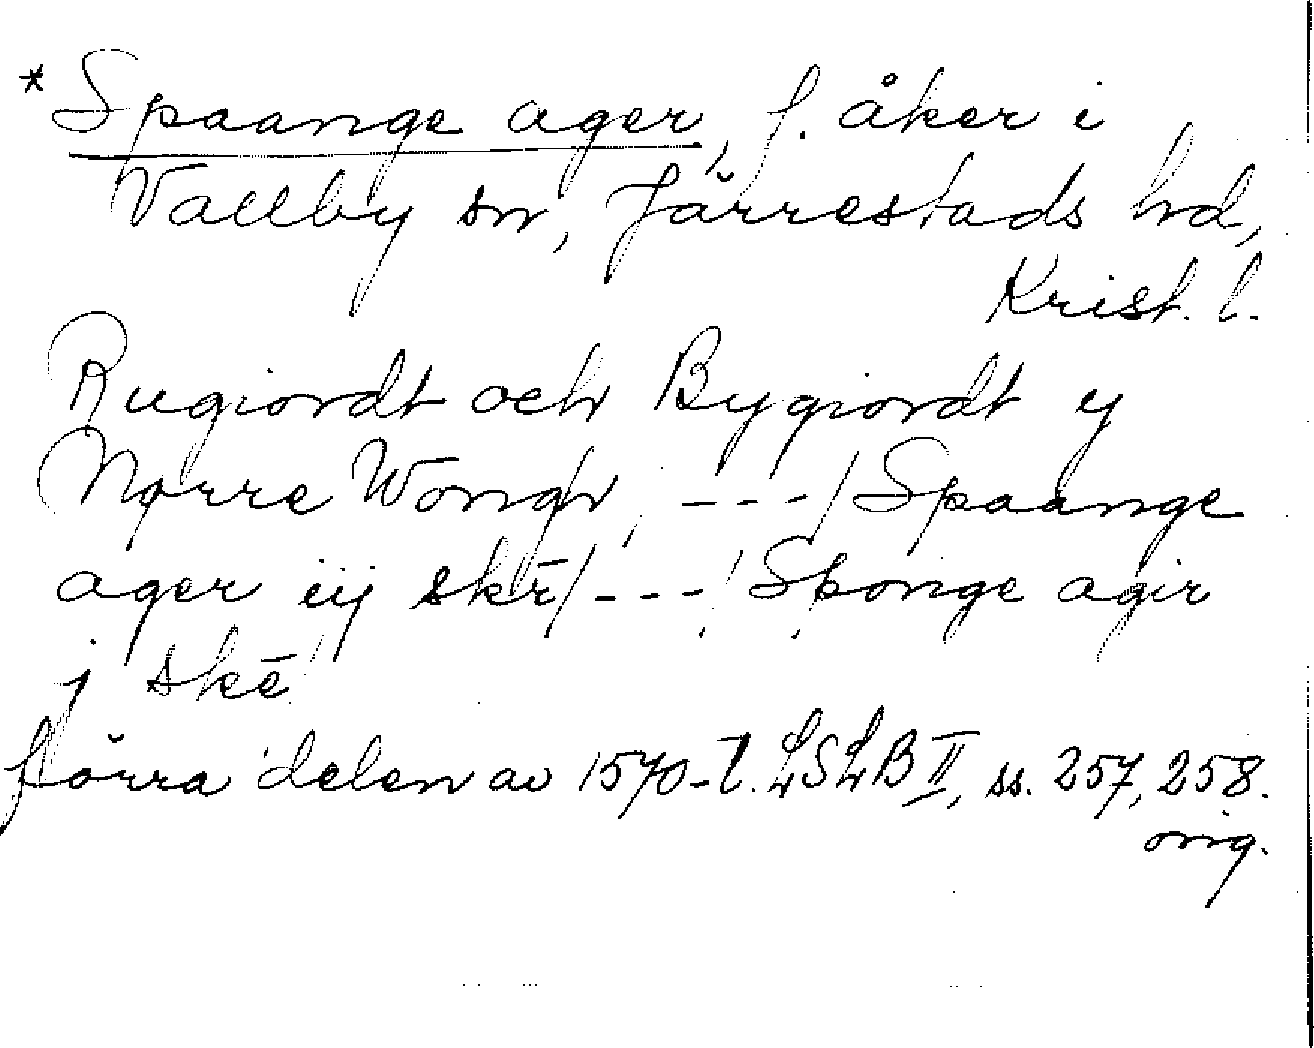 * Spaange ager, f. åker i
Vallby sn, Järrestads hd,
Krist. l.
Rugiordt och Bygiordt y
Nørre Wongh, ---/ Spaange
ager iij skr̄/ ---/ Sponge agir
j skē/
förra delen av 1570-t. LSLB II, ss. 257, 258.
orig.